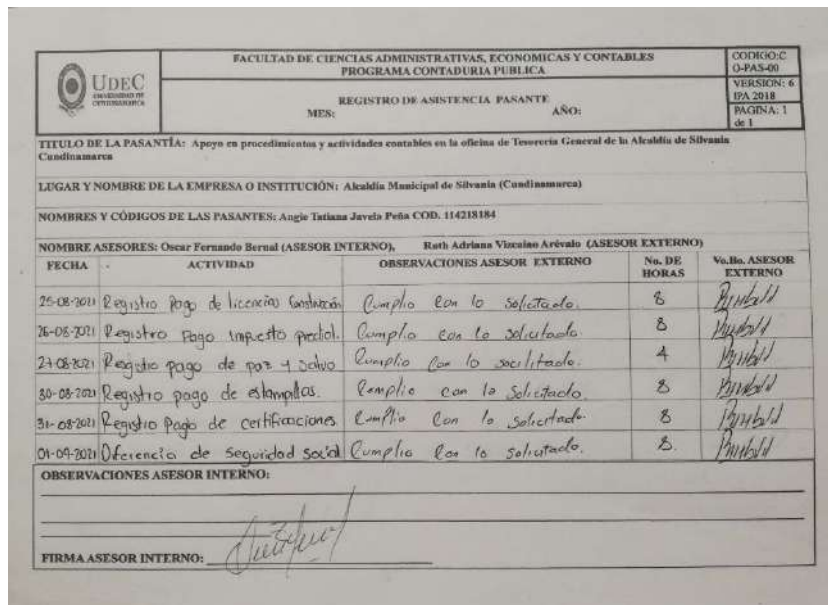 UDEC
UNIVERSIDAD DE
CUNDINAMARCA
FACULTAD DE CIENCIAS ADMINISTRATIVAS, ECONOMICAS Y CONTABLES
PROGRAMA CONTADURIA PUBLICA
REGISTRO DE ASISTENCIA PASANTE
MES: AÑO:
CODIGO:C
O-PAS-00
VERSION: 6
IPA 2018
PAGINA: 1
de 1
TITULO DE LA PASANTÍA: Apoyo en procedimientos y actividades contables en la oficina de Tesorería General de la Alcaldía de Silvania
Cundinamarca
LUGAR Y NOMBRE DE LA EMPRESA O INSTITUCIÓN: Alcaldía Municipal de Silvania (Cundinamarca)
NOMBRES Y CÓDIGOS DE LAS PASANTES: Angie Tatiana Javela Peña COD. 114218184
NOMBRE ASESORES: Oscar Fernando Bernal (ASESOR INTERNO), Ruth Adriana Vizcaino Arévalo (ASESOR EXTERNO)
FECHA ACTIVIDAD OBSERVACIONES ASESOR EXTERNO No. DE HORAS Vo.Bo. ASESOR EXTERNO
25-08-2021 Registro Pago de licencias Construcción Cumplio con lo solicitado. 8
26-08-2021 Registro Pago Impuesto predial. Cumplio con lo solicitado. 8
27-08-2021 Registro pago de paz y salvo Cumplio con lo 4
30-08-2021 Registro pago de estampillas. Cumplio con lo Solicitado. 8
31-08-2021 Registro Pago de certificaciones. Cumplio Con lo Solicitado. 8
01-09-2021 de seguridad social Cumplio Con lo Solicitado. 8.
OBSERVACIONES ASESOR INTERNO:
FIRMA ASESOR INTERNO: